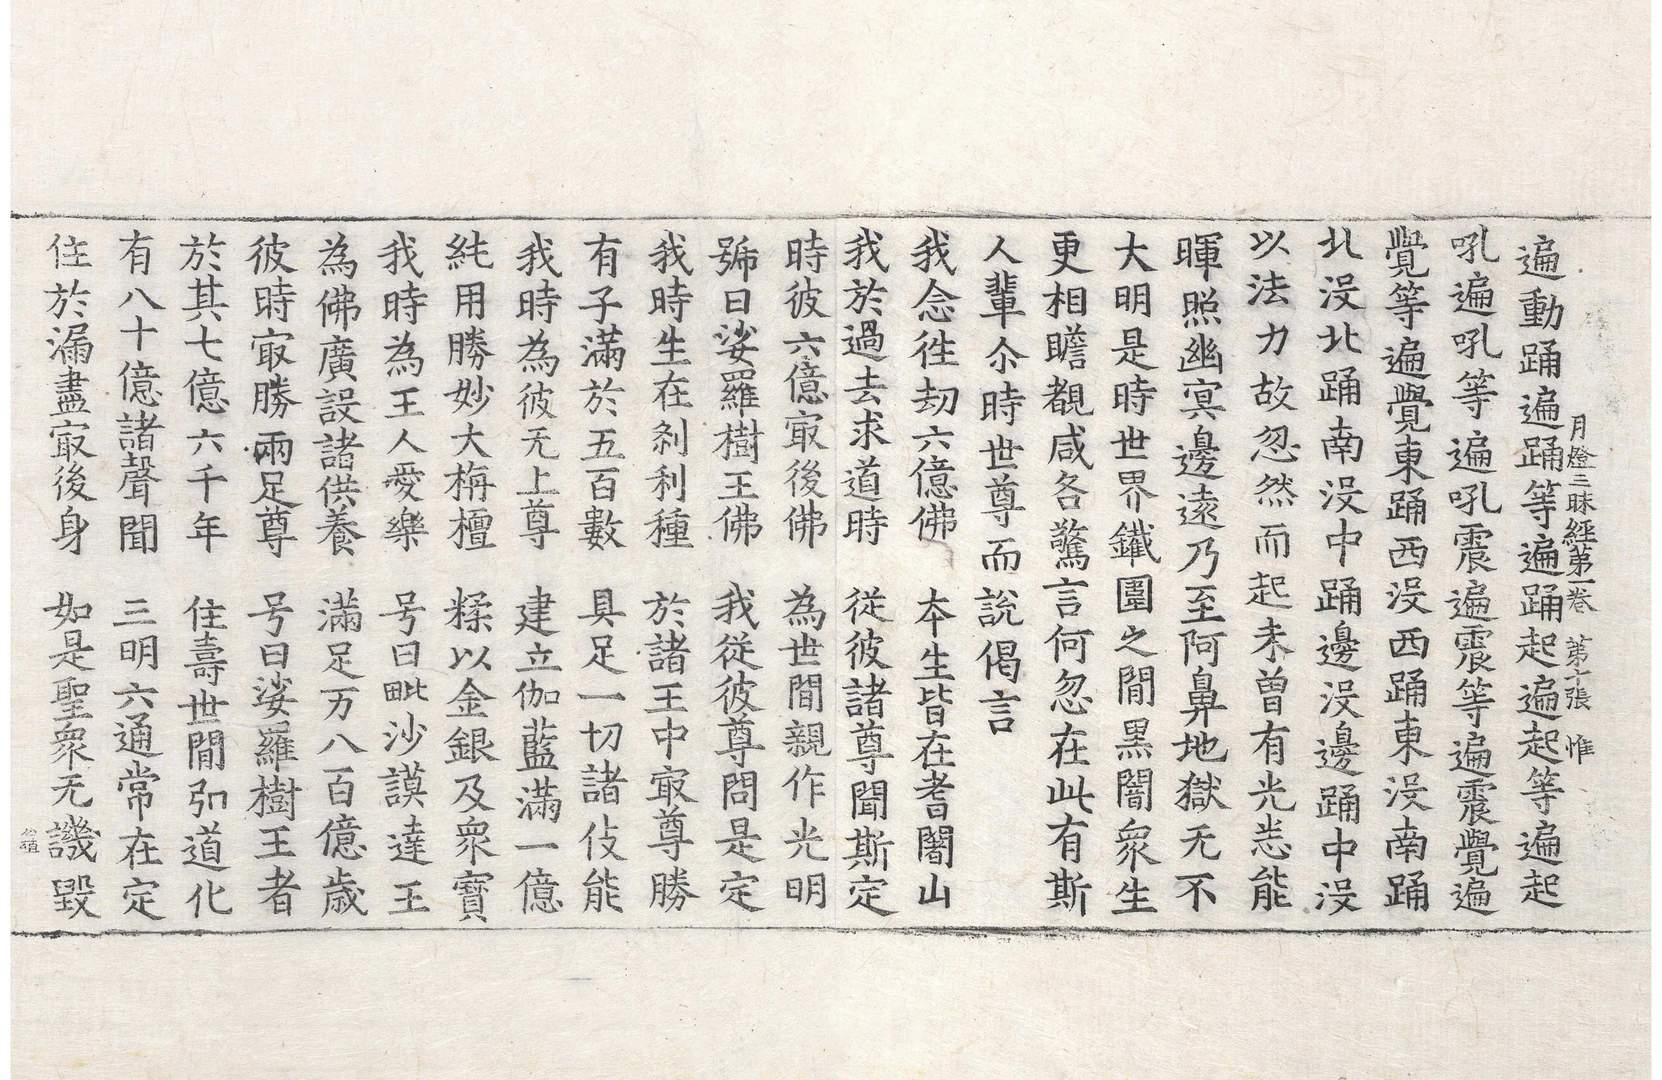 月燈三昧經第一卷　第十張　惟
遍動踊遍踊等遍踊起遍起等遍起
吼遍吼等遍吼震遍震等遍震覺遍
覺等遍覺東踊西没西踊東没南踊
北没北踊南没中踊邊没邊踊中没
以法力故忽然而起未曾有光恙能
暉照幽㝠邊遠乃至阿鼻地獄无不
大明是時世界鐵圍之間黑闇衆生
更相瞻覩咸各驚言何忽在此有斯
人輩尒時世尊而說偈言
我念徃劫六億佛　夲生皆在耆闍山
我於過去求道時　從彼諸尊聞斯定
時彼六億㝡後佛　為世間親作光明
號曰娑羅樹王佛　我從彼尊問是定
我時生在刹利種　於諸王中㝡尊勝
有子滿於五百數　具足一切諸伎能
我時為彼无上尊　建立伽藍滿一億
純用勝妙大栴檀　糅以金銀及衆寶
我時為王人愛樂　号曰毗沙謨達王
為佛廣設諸供養　滿足万八百億歳
彼時㝡勝兩足尊　号曰娑羅樹王者
於其七億六千年　住壽世間弘道化
有八十億諸聲聞　三明六通常在定
住於漏盡㝡後身　如是聖衆无譏毀